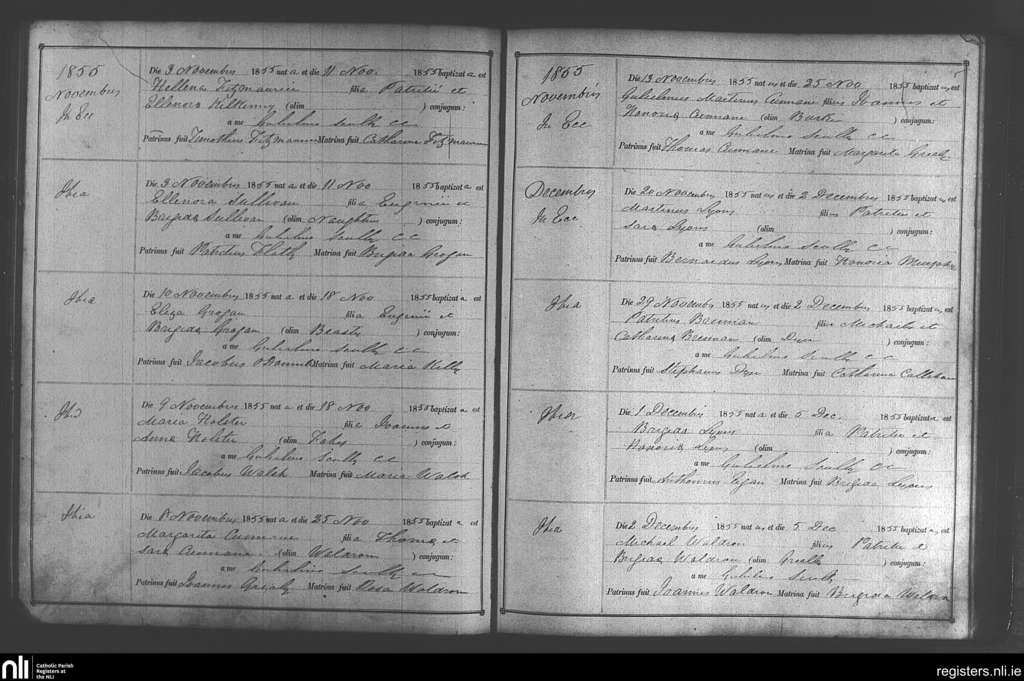 1855
Novembris
In Ecc
Die 3 Novembris 1855 nat a et die 11 Nov. 1855 baptizat a est
Hellena Fitzmaurice fili a Patritii et
Ellenora Kilkenny (olim ) conjugum:
a me Gulielmo Scully CC
Patrinus fuit Timothius Fitzmaurice Matrina fuit Catharina Fitzmaurice
Ibid
Die 3 Novembris 1855 nat a et die 11 Nov 1855 baptizat a est
Ellenora Sullivan fili a Eugenii et
Brigida Sullivan (olim Naughten ) conjugum:
a me Gulielmo Scully CC
Patrinus fuit Patritius Flatly Matrina fuit Brigida Grogan
Ibid
Die 10 Novembris 1855 nat a et die 18 Nov 1855 baptizat a est
Eliza Grogan fili a Eugenii et
Brigida Grogan (olim ) conjugum:
a me Gulielmo Scully CC
Patrinus fuit Jacobus O'Donnell Matrina fuit Maria Kelly
Ibid
Die 9 Novembris 1855 nat a et die 18 Nov 1855 baptizat a est
Maria fili a Joannis et
Anna (olim ) conjugum:
a me Gulielmo Scully CC
Patrinus fuit Jacobus Walsh Matrina fuit Maria
Ibid
Die 8 Novembris 1855 nat a et die 25 Nov 1855 baptizat a est
Margarita Cunnane fili a Thoma et
Sara Cunnane (olim Waldron ) conjugum:
a me Gulielmo Scully CC
Patrinus fuit Joannes Grealy Matrina fuit Rosa Waldron
1855
Novembris
In Ecc
Die 13 Novembris 1855 nat us et die 25 Nov 1855 baptizat us est
Gulielmus Martinus Cunnane filius Joannis et
Honoria Cunnane (olim Burke ) conjugum:
a me Gulielmo Scully CC
Patrinus fuit Thomas Cunnane Matrina fuit Margarita Grealy
Decembris
In Ecc
Die 20 Novembris 1855 nat us et die 2 Decembris 1855 baptizat us est
Martinus Lyons fili us Patritii et
Sara Lyons (olim ) conjugum:
a me Gulielmo Scully CC
Patrinus fuit Bernardus Lyons Matrina fuit Honoria
Ibid
Die 29 Novembris 1855 nat us et die 2 Decembris 1855 baptizat us est
Patritius Brennan fili us Michaelis et
Catharina Brennan (olim ) conjugum:
a me Gulielmo Scully CC
Patrinus fuit Stephanus Matrina fuit Catharina
Ibid
Die 1 Decembris 1855 nat a et die 5 Dec. 1855 baptizat a est
Brigida Lyons fili a Patritii et
Honoria Lyons (olim ) conjugum:
a me Gulielmo Scully CC
Patrinus fuit Anthonius Matrina fuit Brigida Lyons
Ibid
Die 2 Decembris 1855 nat us et die 5 Dec 1855 baptizat us est
Michael Waldron fili us Patritii et
Brigida Waldron (olim ) conjugum:
a me Gulielmo Scully
Patrinus fuit Joannes Waldron Matrina fuit Brigida Waldron
nli
Catholic Parish
Registers at
the NLI
registers.nli.ie